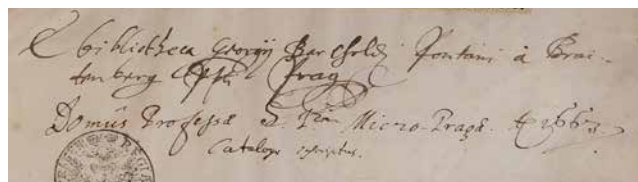 E bibliotheca Georgij Bartholdi Pontani à Brai-
tenberg Prag
Domus Professæ Micro-Pragæ. 1663.
Catalogo scriptus.